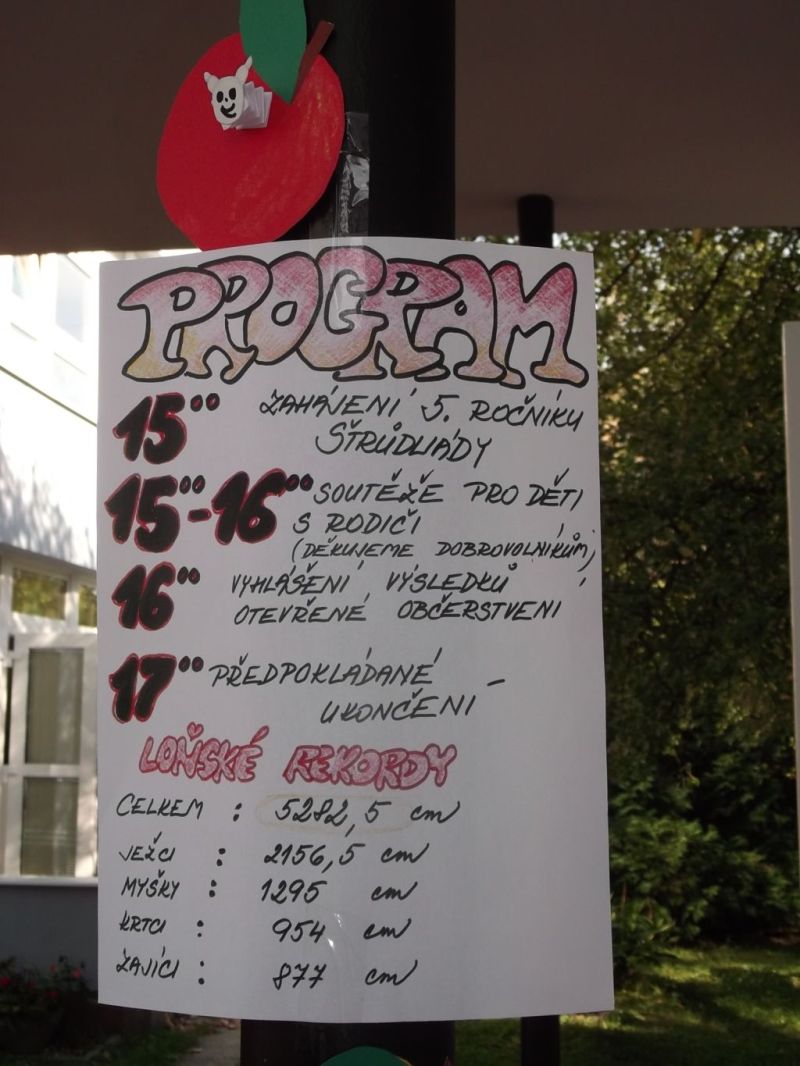 PROGRAM
15°° ZAHÁJENÍ 5. ROČNÍKU
ŠTRŮDLIÁDY
15°°-16°° SOUTĚŽE PRO DĚTI
S RODIČI
(DĚKUJEME DOBROVOLNÍKŮM)
16°° VYHLÁŠENÍ VÝSLEDKŮ,
OTEVŘENÉ OBČERSTVENÍ
17°° PŘEDPOKLÁDANÉ -
UKONČENÍ
LOŇSKÉ REKORDY
CELKEM : 5282,5 cm
JEŽCI : 2156,5 cm
MYŠKY : 1295 cm
KRTCI : 954 cm
ZAJÍCI : 877 cm